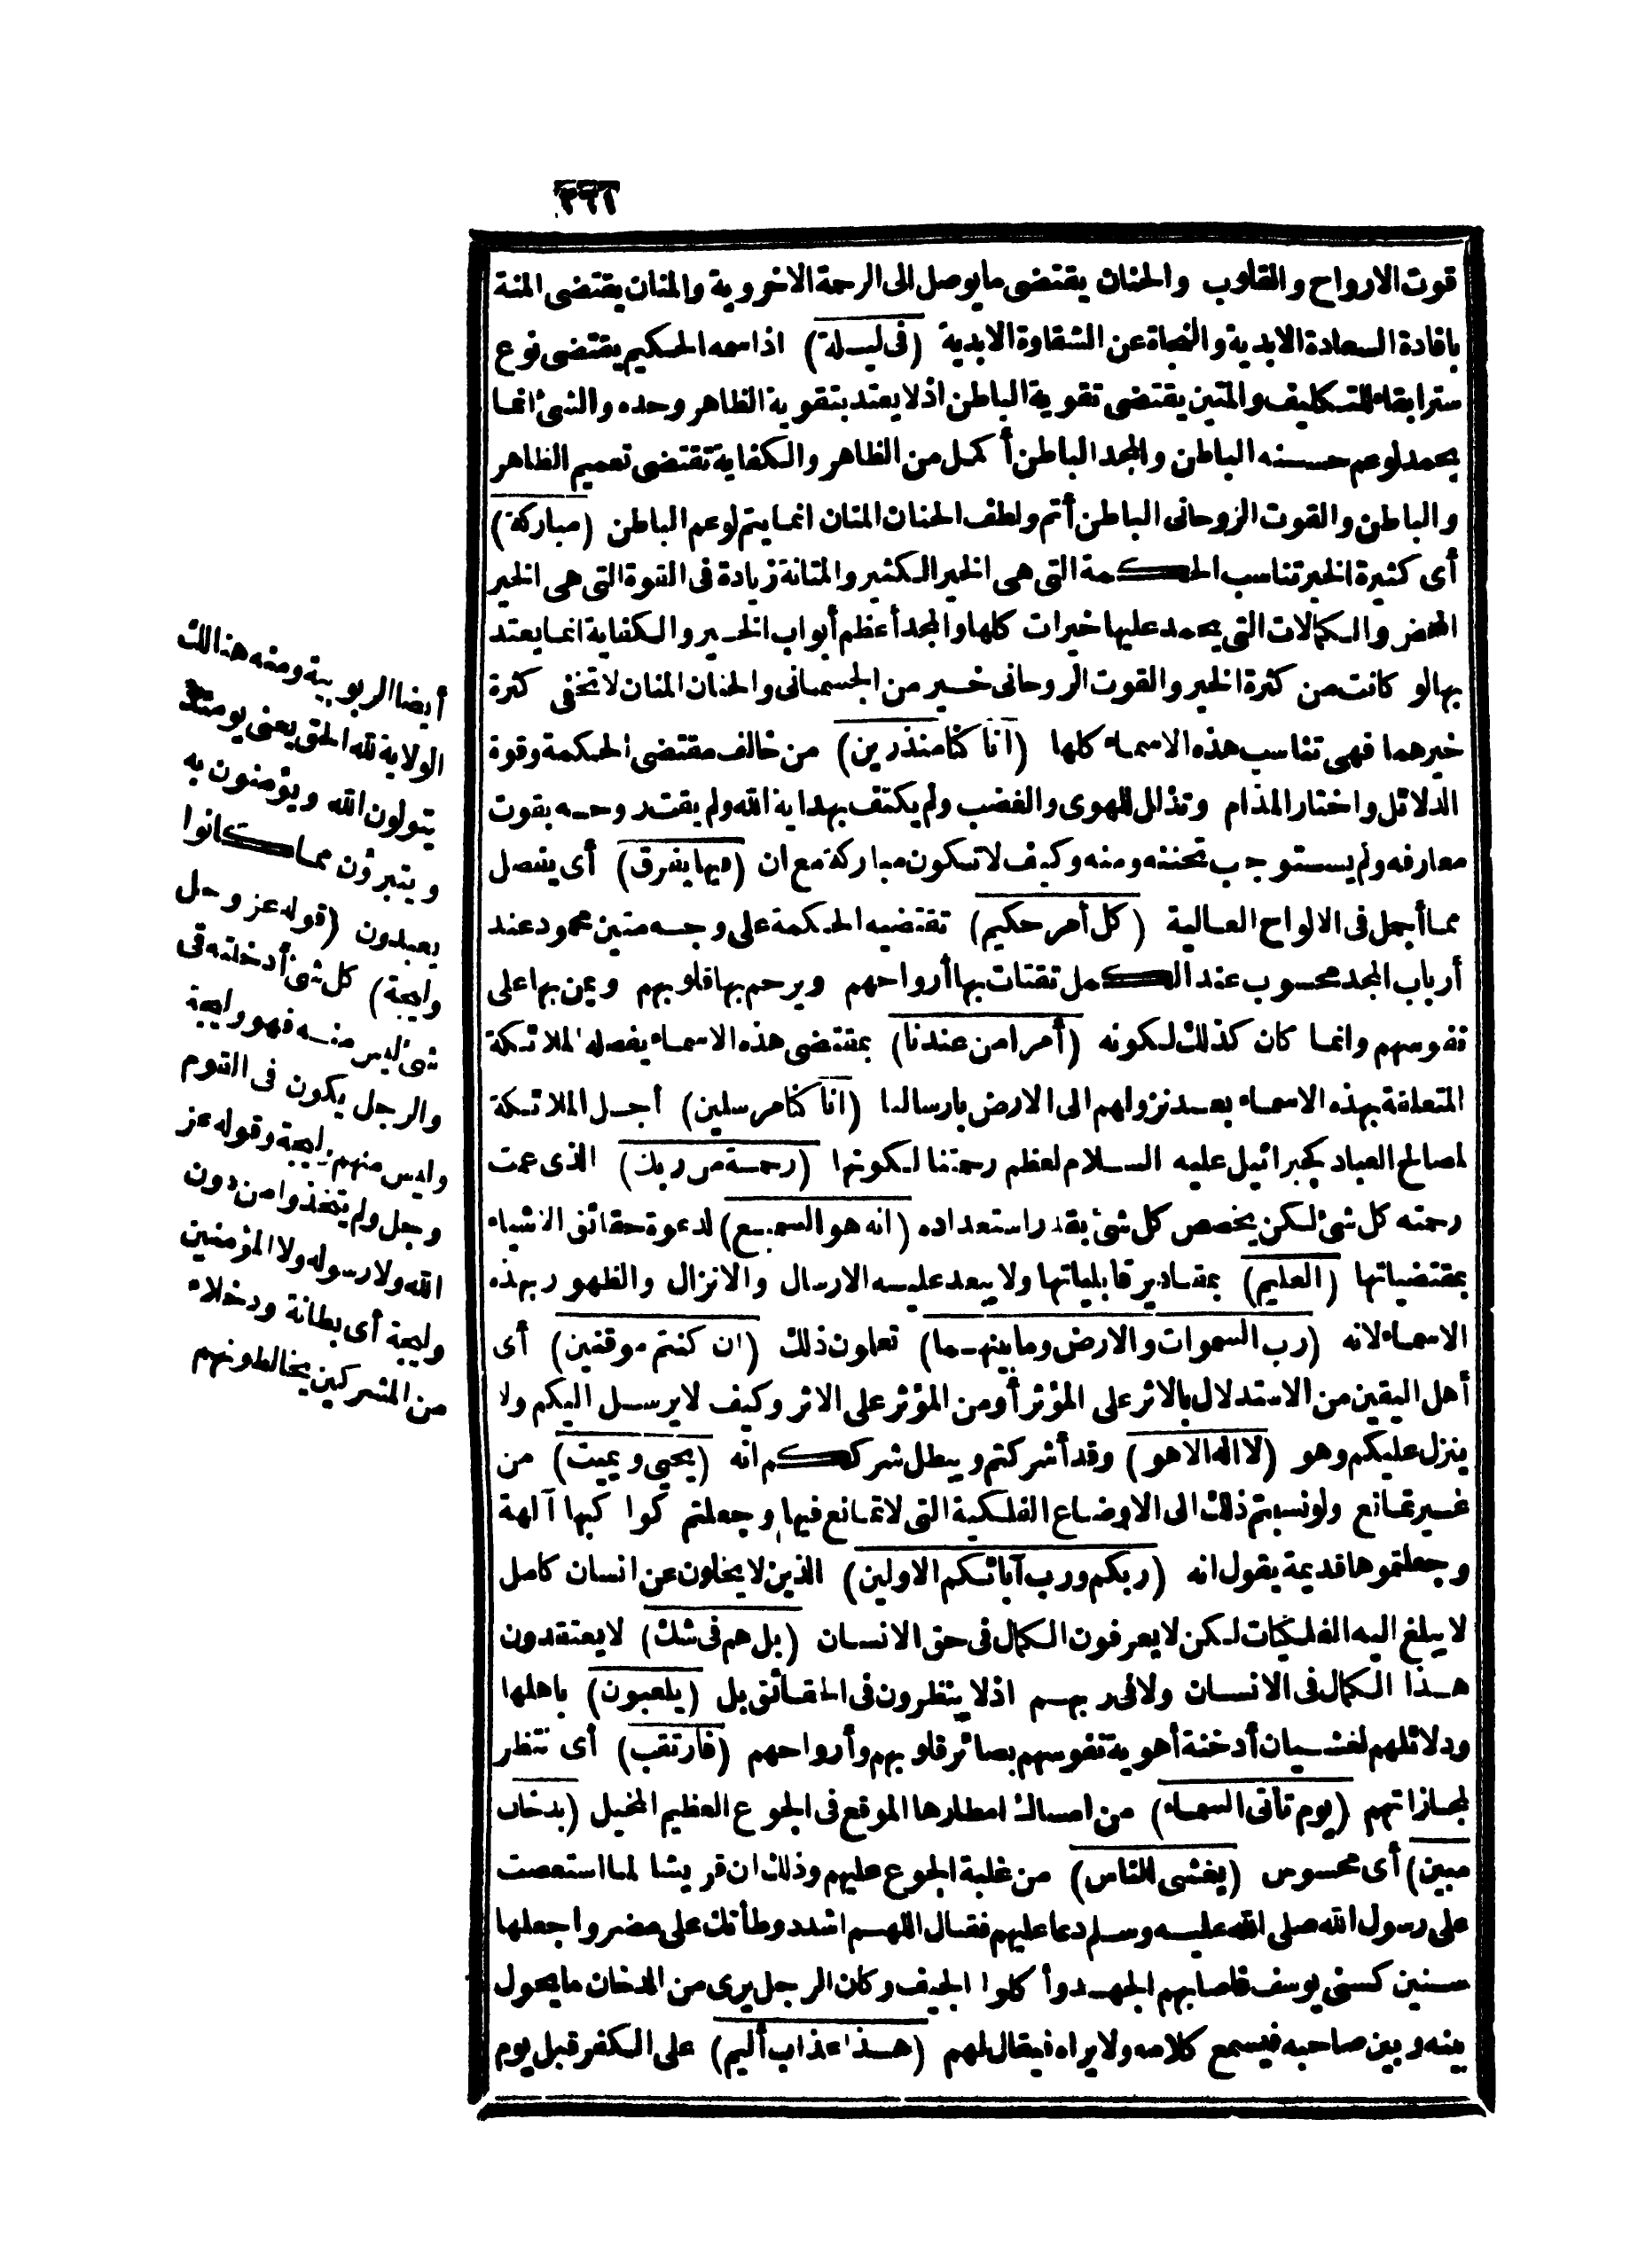 قوت الارواح والقلوب والحنان يقتضى ما يوصل الى الرحمة الاخروية والمنان يقتضى المنة
بافادة السعادة الابدية والنجاة عن الشقاوة الابدية (فى ليلة) اذ اسمه الحكيم يقتضى نوع
ستر ابقاء للتكليف والمتين يقتضى تقوية الباطن اذ لا يعتد بتقوية الظاهر وحده والشئ انما
يحمد لو عم حسنه الباطن والمجد الباطن أكمل من الظاهر والكفاية تقتضى تعميم الظاهر
والباطن والقوت الروحانى الباطن أتم ولطف الحنان المنان انما يتم لو عم الباطن (مباركة)
أى كثيرة الخير تناسب الحكمة التى هى الخير الكثير والمتانة زيادة فى القوة التى هى الخير
المحض والكمالات التى يحمد عليها خيرات كلها والمجد أعظم أبواب الخير والكفاية انما يعتد
بها لو كانت من كثرة الخير والقوت الروحانى خير من الجسمانى والحنان المنان لا تخفى كثرة
خيرهما فهى تناسب هذه الاسماء كلها (انا كنا منذرين) من خالف مقتضى الحكمة وقوة
الدلائل واختار المذام وتذلل للهوى والغضب ولم يكتف بهداية الله ولم يقت روحه بقوت
معارفه ولم يستوجب تحننه ومنه وكيف لا تكون مباركة مع ان (فيها يفرق) أى يفصل
مما أجمل فى الالواح العالية (كل أمر حكيم) تقتضيه الحكمة على وجه متين محمود عند
أرباب المجد محسوب عند الكمل تقتات بها أرواحهم ويرحم بها قلوبهم ويمن بها على
نفوسهم وانما كان كذلك لكونه (أمرا من عندنا) بمقتضى هذه الاسماء يفصله الملائكة
المتعلقة بهذه الاسماء بعد نزولهم الى الارض بارسالنا (انا كنا مرسلين) أجل الملائكة
لمصالح العباد كجبرائيل عليه السلام لعظم رحمتنا لكونها (رحمة من ربك) الذى عمت
رحمته كل شئ لكن يخصص كل شئ بقدر استعداده (انه هو السميع) لدعوة حقائق الاشياء
بمقتضياتها (العليم) بمقادير قابلياتها ولا يبعد عليه الارسال والانزال والظهور بهذه
الاسماء لانه (رب السموات والارض وما بينهما) تعلمون ذلك (ان كنتم موقنين) أى
أهل اليقين من الاستدلال بالاثر على المؤثر أو من المؤثر على الاثر وكيف لا يرسل اليكم ولا
ينزل عليكم وهو (لا اله الا هو) وقد أشركتم ويبطل شرككم انه (يحيى ويميت) من
غير تمانع ولو نسبتم ذلك الى الاوضاع الفلكية التى لا تمانع فيها وجعلتم كواكبها آلهة
وجعلتموها قديمة يقول انه (ربكم ورب آبائكم الاولين) الذين لا يخلون عن انسان كامل
لا يبلغ اليه الفلكيات لكن لا يعرفون الكمال فى حق الانسان (بل هم فى شك) لا يعتقدون
هذا الكمال فى الانسان ولا فى ربهم اذ لا ينظرون فى الحقائق بل (يلعبون) باهلها
ودلائلهم لغشيان أدخنة أهوية نفوسهم بصائر قلوبهم وأرواحهم (فارتقب) أى تنتظر
لمجازاتهم (يوم تأتى السماء) من امساك امطارها الموقع فى الجوع العظيم المخيل (بدخان
مبين) أى محسوس (يغشى الناس) من غلبة الجوع عليهم وذلك ان قريشا لما استعصت
على رسول الله صلى الله عليه وسلم دعا عليهم فقال اللهم اشدد وطأتك على مضر واجعلها
سنين كسنى يوسف فاصابهم الجهد وأكلوا الجيف وكان الرجل يرى من الدخان ما يحول
بينه وبين صاحبه فيسمع كلامه ولا يراه فيقال لهم (هذا عذاب أليم) على الكفر قبل يوم
أيضا الربوبية ومنه هنالك
الولاية لله الحق يعنى يومئذ
يتولون الله ويؤمنون به
ويتبرؤن مما كانوا
يعبدون (قوله عز وجل
وليجة) كل شئ أدخلته فى
شئ ليس منه فهو وليجة
والرجل يكون فى القوم
وليس منهم وليجة وقوله عز
وجل ولم يتخذوا من دون
الله ولا رسوله ولا المؤمنين
وليجة أى بطانة ودخلاء
من المشركين يخالطونهم